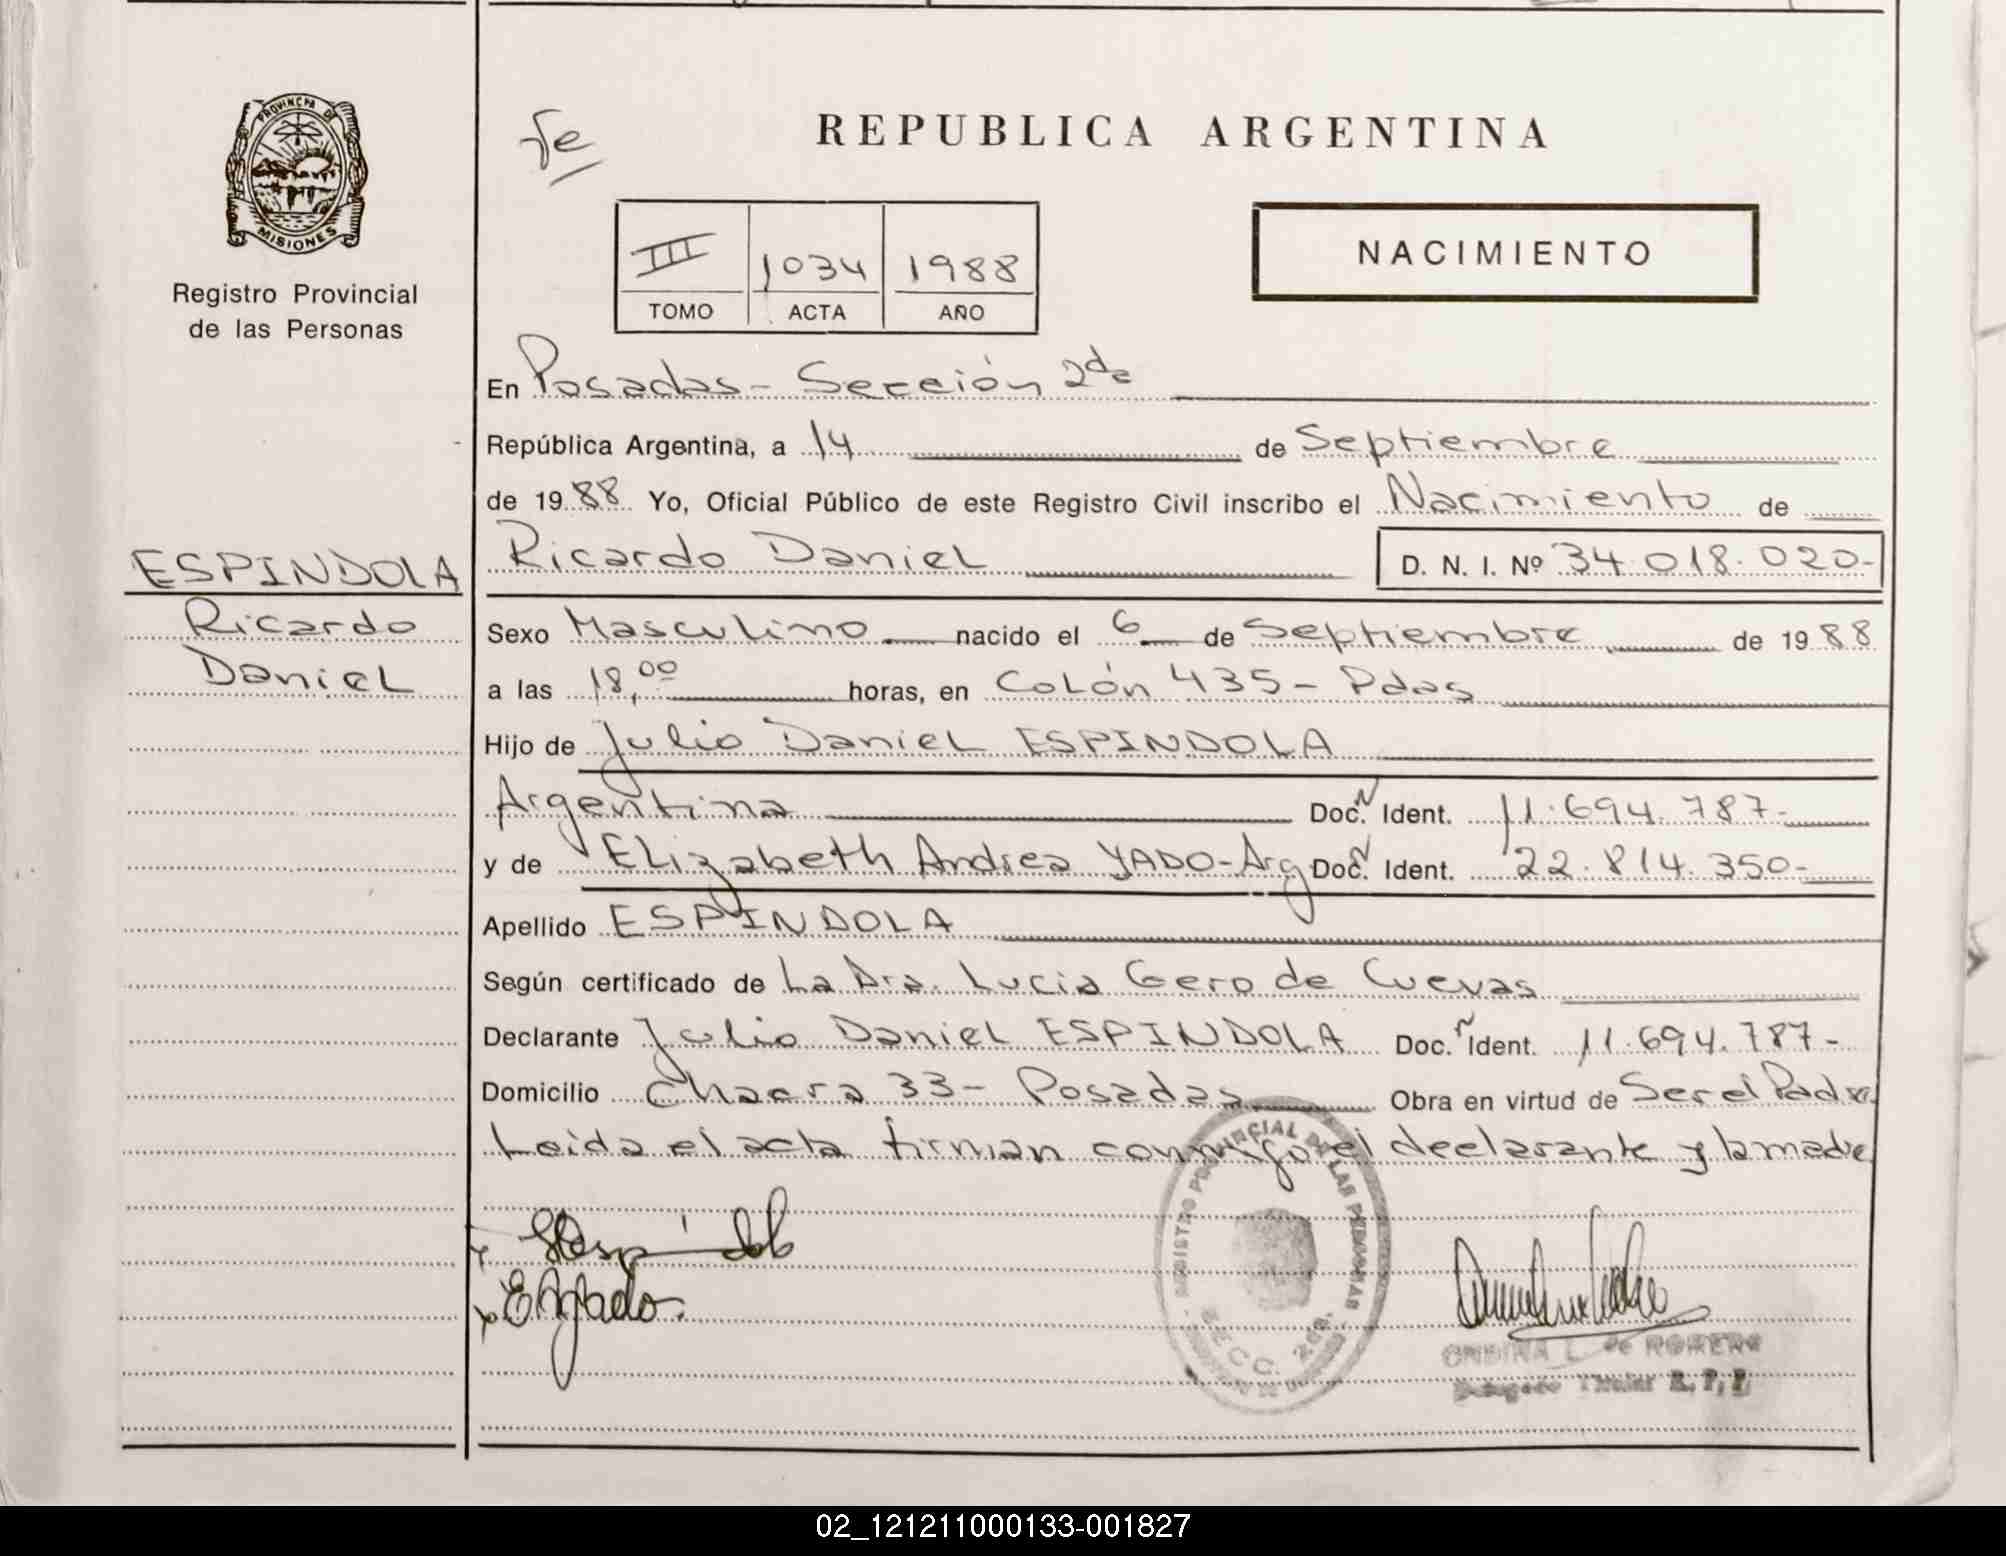 PROVINCIA DE
MISIONES
Registro Provincial
de las Personas
ESPINDOLA
Ricardo
Daniel
REPUBLICA ARGENTINA
III 1034 1988
TOMO ACTA AÑO
NACIMIENTO
En Posadas - Sección 2da
República Argentina, a 14 de Septiembre
de 1988 Yo, Oficial Público de este Registro Civil inscribo el Nacimiento de
Ricardo Daniel D. N. I. Nº 34.018.020-
Sexo Masculino nacido el 6 de Septiembre de 1988
a las 18,00 horas, en Colón 435 - Pdas
Hijo de Julio Daniel ESPINDOLA
Argentina Doc. Ident. 11.694.787-
y de Elizabeth Andrea YADO - Arg Doc. Ident. 22.814.350-
Apellido ESPINDOLA
Según certificado de La Dra. Lucia Gero de Cuevas
Declarante Julio Daniel ESPINDOLA Doc. Ident. 11.694.787-
Domicilio Chacra 33 - Posadas Obra en virtud de Ser el Padre
Leida el acta firman conmigo el declarante y la madre
REGISTRO PROVINCIAL DE LAS PERSONAS
SECC. 2da.
EAYado.
ONDINA L. de ROMERO
Delegado Titular R. P. P.
02_121211000133-001827